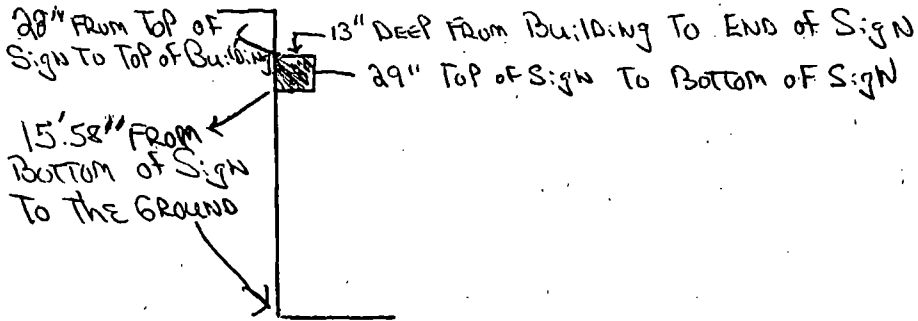 28" FROM TOP OF
SigN To TOP of BuilDiNg
13" DEEP FROM BuilDiNg To END of SigN
29" TOP OF SigN To BOTTOM OF SigN
15'.58" FROM
BOTTOM of SigN
To THE GROUND